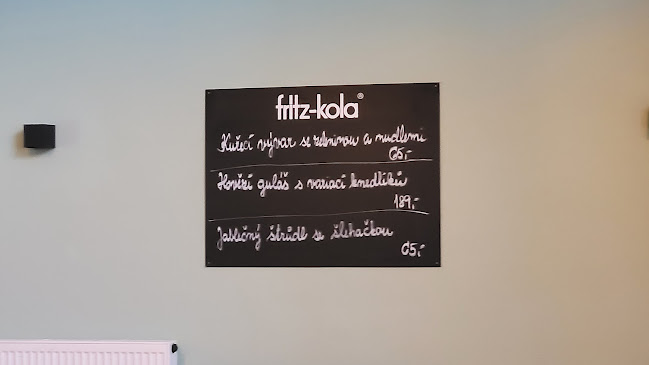 fritz-kola®
Kuřecí vývar se zeleninou a nudlemi
65,-
Hovězí guláš s variací knedlíků
189,-
Jablečný štrúdl se šlehačkou
65,-